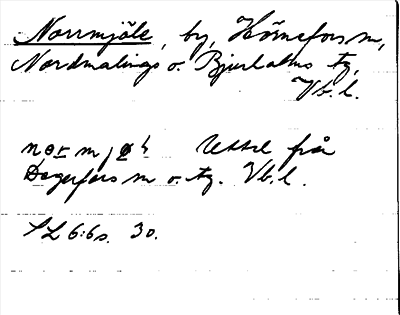 Norrmjöle, by, Hörnefors sn,
Nordmalings o. Bjurholms tg,
Vb. l.
Uttal från
Degerfors sn o. tg. Vb. l.
SL 6:6 s. 30.